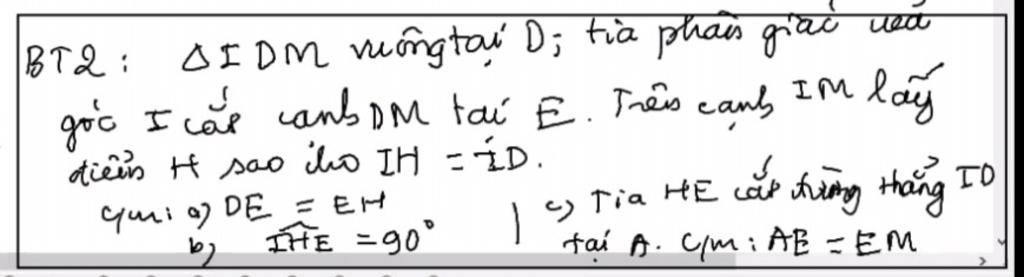 BT2: Δ IDM vuông tại D; tia phân giác của
góc I cắt cạnh DM tại E. Trên cạnh IM lấy
điểm H sao cho IH = ID.
c/m: a) DE = EH
b) \widehat{IHE} = 90°
c) Tia HE cắt đường thẳng ID
tại A. C/m: AE = EM